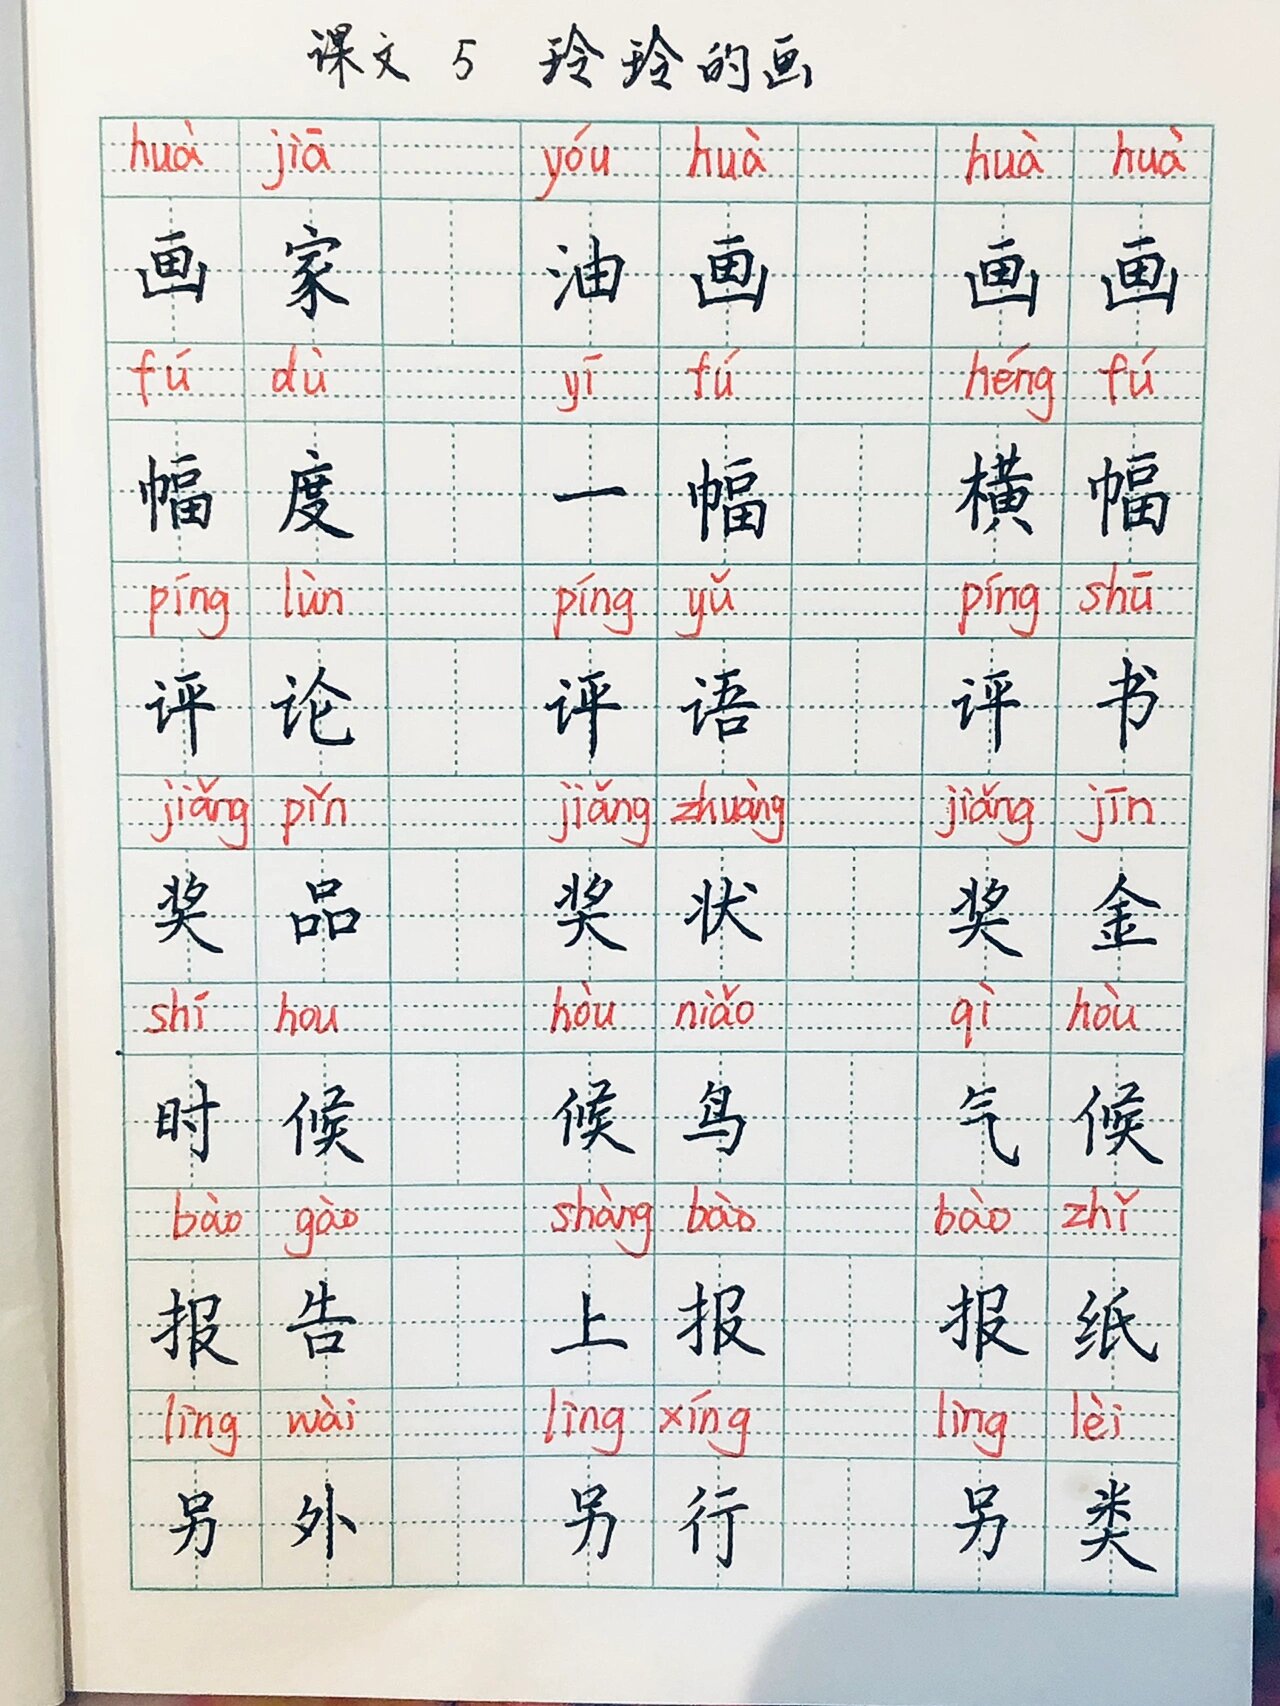 课文 5 玲玲的画
huà jiā yóu huà huà huà
画家 油画 画画
fú dù yī fú héng fú
幅度 一幅 横幅
píng lùn píng yǔ píng shū
评论 评语 评书
jiǎng pǐn jiǎng zhuàng jiǎng jīn
奖品 奖状 奖金
shí hou hòu niǎo qì hòu
时候 候鸟 气候
bào gào shàng bào bào zhǐ
报告 上报 报纸
lìng wài lìng xíng lìng lèi
另外 另行 另类